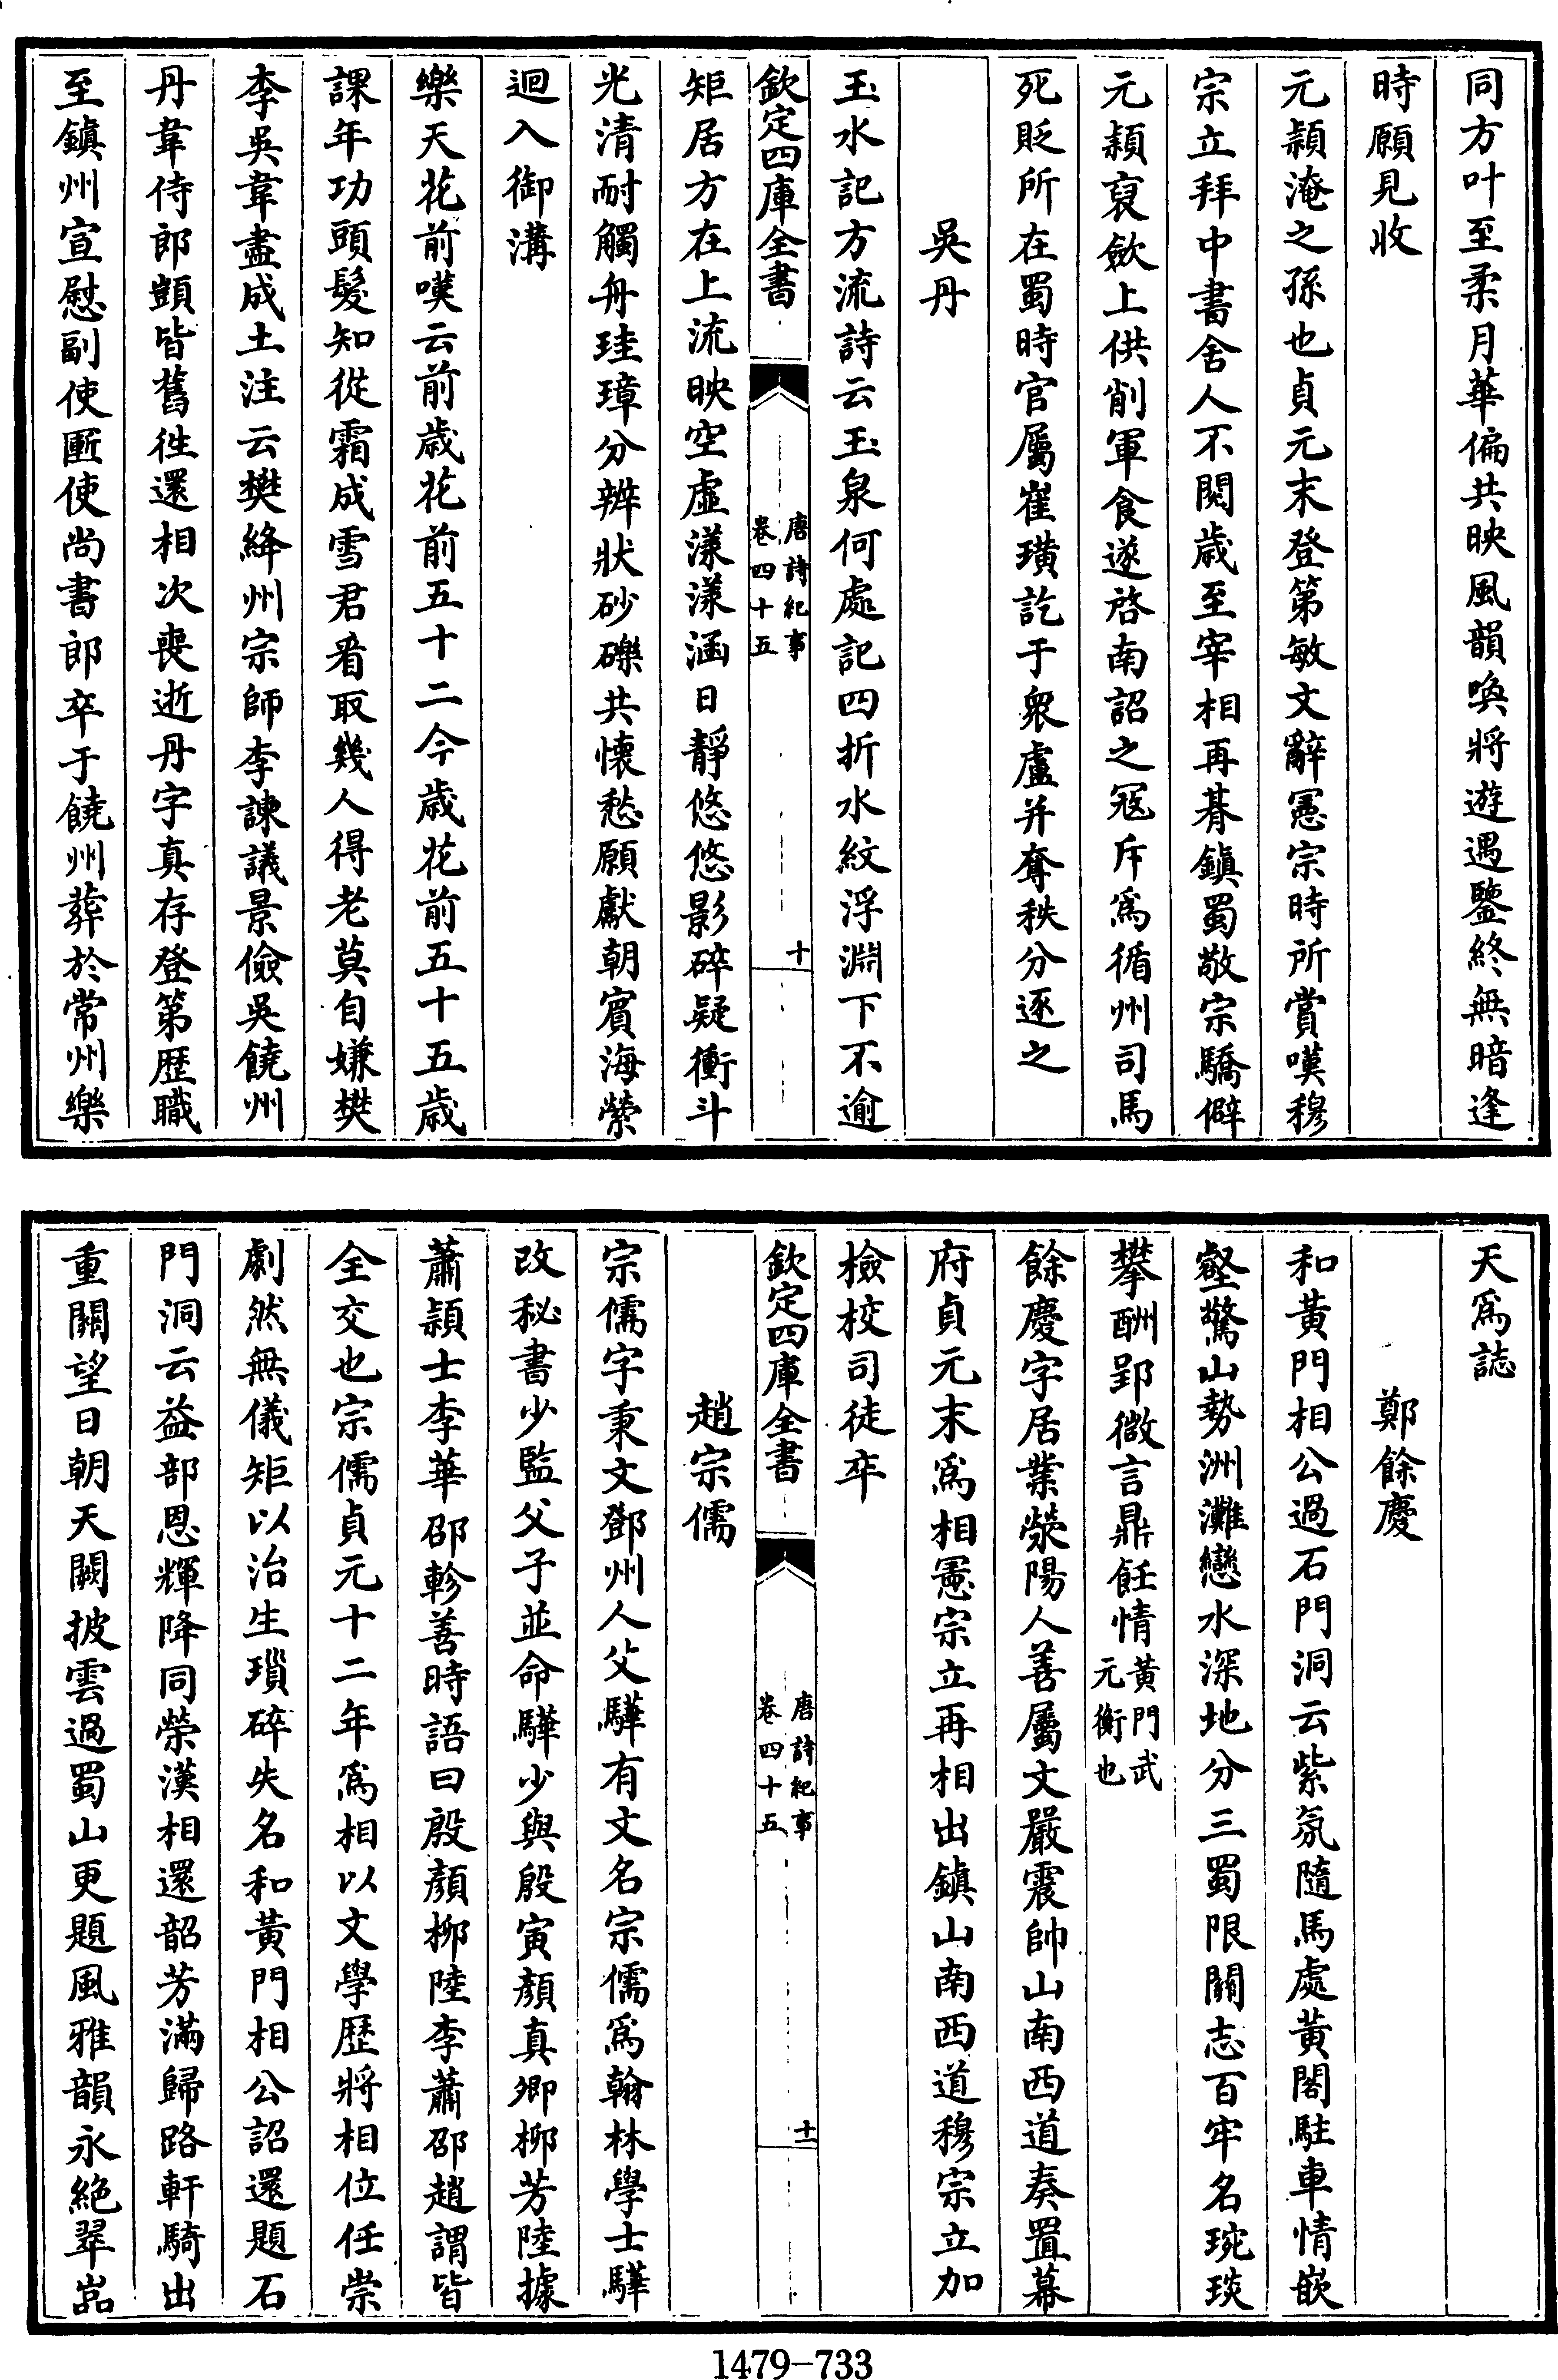 同方叶至柔月華偏共映風韻喚將遊遇鑒終無暗逢
時願見收
元穎淹之孫也貞元末登第敏文辭憲宗時所賞嘆穆
宗立拜中書舍人不閱歲至宰相再朞鎮蜀敬宗驕僻
元穎裒歛上供削軍食遂啓南詔之寇斥爲循州司馬
死貶所在蜀時官屬崔璜訖于衆盧并奪秩分逐之
吳丹
玉水記方流詩云玉泉何處記四折水紋浮淵下不逾
欽定四庫全書
唐詩紀事
卷四十五
十
矩居方在上流映空虛漾漾涵日靜悠悠影碎疑衝斗
光清耐觸舟珪璋分辨狀砂礫共懷愁願獻朝賓海縈
迴入御溝
樂天花前嘆云前歲花前五十二今歲花前五十五歲
課年功頭髮知從霜成雪君看取幾人得老莫自嫌樊
李吳韋盡成土注云樊絳州宗師李諫議景儉吳饒州
丹韋侍郎顗皆舊徃還相次喪逝丹字真存登第歴職
至鎮州宣慰副使匭使尚書郎卒于饒州葬於常州樂
天爲誌
鄭餘慶
和黃門相公過石門洞云紫氛隨馬處黃閣駐車情嵌
壑驚山勢洲灘戀水深地分三蜀限關志百牢名琬琰
攀酬郢微言鼎飪情黃門武元衡也
餘慶字居業滎陽人善屬文嚴震帥山南西道奏置幕
府貞元末爲相憲宗立再相出鎮山南西道穆宗立加
檢校司徒卒
欽定四庫全書
唐詩紀事
卷四十五
十一
趙宗儒
宗儒字秉文鄧州人父驊有文名宗儒爲翰林學士驊
改秘書少監父子並命驊少與殷寅顏真卿柳芳陸據
蕭穎士李華邵軫善時語曰殷顏柳陸李蕭邵趙謂皆
全交也宗儒貞元十二年爲相以文學歷將相位任崇
劇然無儀矩以治生瑣碎失名和黃門相公詔還題石
門洞云益部恩輝降同榮漢相還韶芳滿歸路軒騎出
重關望日朝天闕披雲過蜀山更題風雅韻永絕翠嵓
1479-733